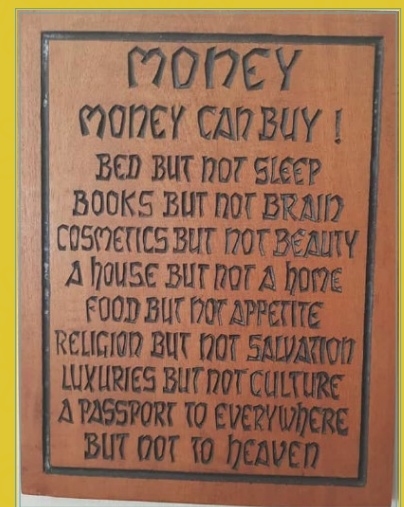 MONEY
MONEY CAN BUY !
BED BUT NOT SLEEP
BOOKS BUT NOT BRAIN
COSMETICS BUT NOT BEAUTY
A HOUSE BUT NOT A HOME
FOOD BUT NOT APPETITE
RELIGION BUT NOT SALVATION
LUXURIES BUT NOT CULTURE
A PASSPORT TO EVERYWHERE
BUT NOT TO HEAVEN